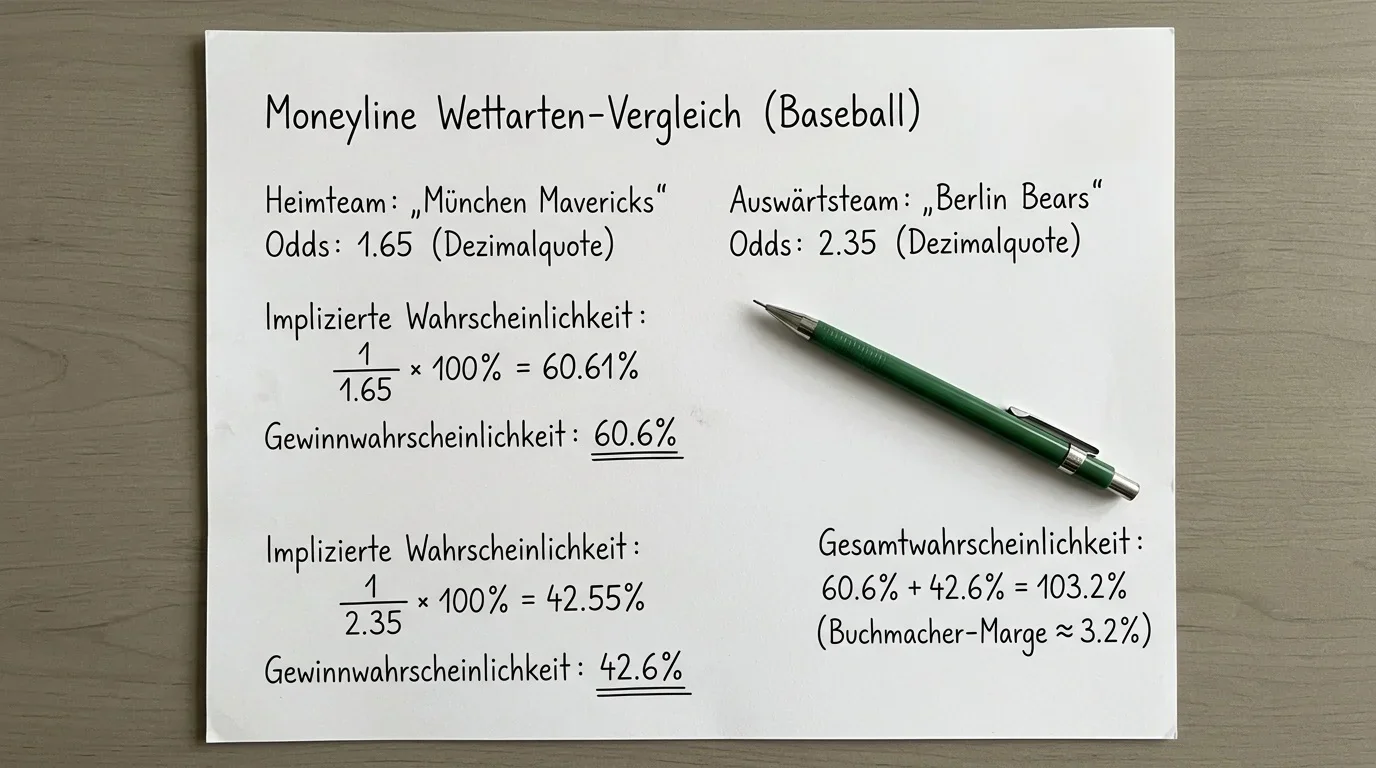 Moneyline Wettarten-Vergleich (Baseball)
Heimteam: „München Mavericks“
Odds: 1.65 (Dezimalquote)
Auswärtsteam: „Berlin Bears“
Odds: 2.35 (Dezimalquote)
Implizierte Wahrscheinlichkeit:
1/1.65 × 100% = 60.61%
Gewinnwahrscheinlichkeit: 60.6%
Implizierte Wahrscheinlichkeit:
1/2.35 × 100% = 42.55%
Gewinnwahrscheinlichkeit: 42.6%
Gesamtwahrscheinlichkeit:
60.6% + 42.6% = 103.2%
(Buchmacher-Marge ≈ 3.2%)